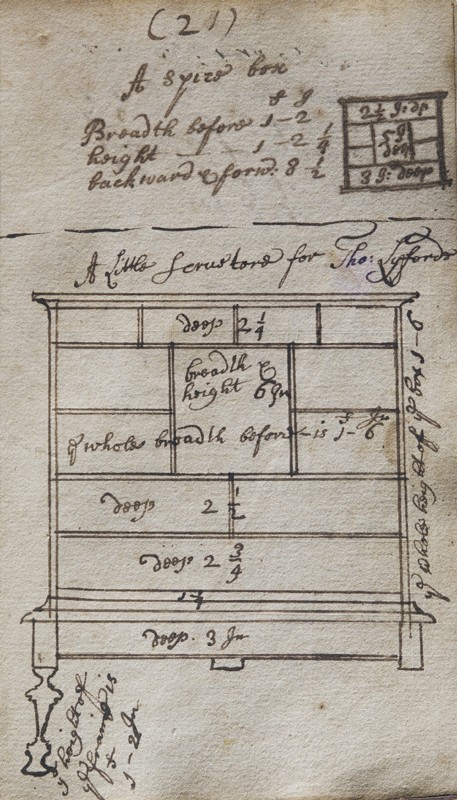 (21)
A spire box
f J
Breadth before 1-2
height — 1-2 1/4
backward & forw: 8 1/2
2 1/2 J: dp
5 J
deep
3 J: deep
A Little scruetore for Tho:
deep 2 1/4
breadth &
height 6 Jn
f Jn
ye whole breadth before is 1-6
deep 2 1/2
deep 2 3/4
deep. 3 Jn
ye whole height of ye box 1-6
ye height of
ye frame is
f Jn
1-2